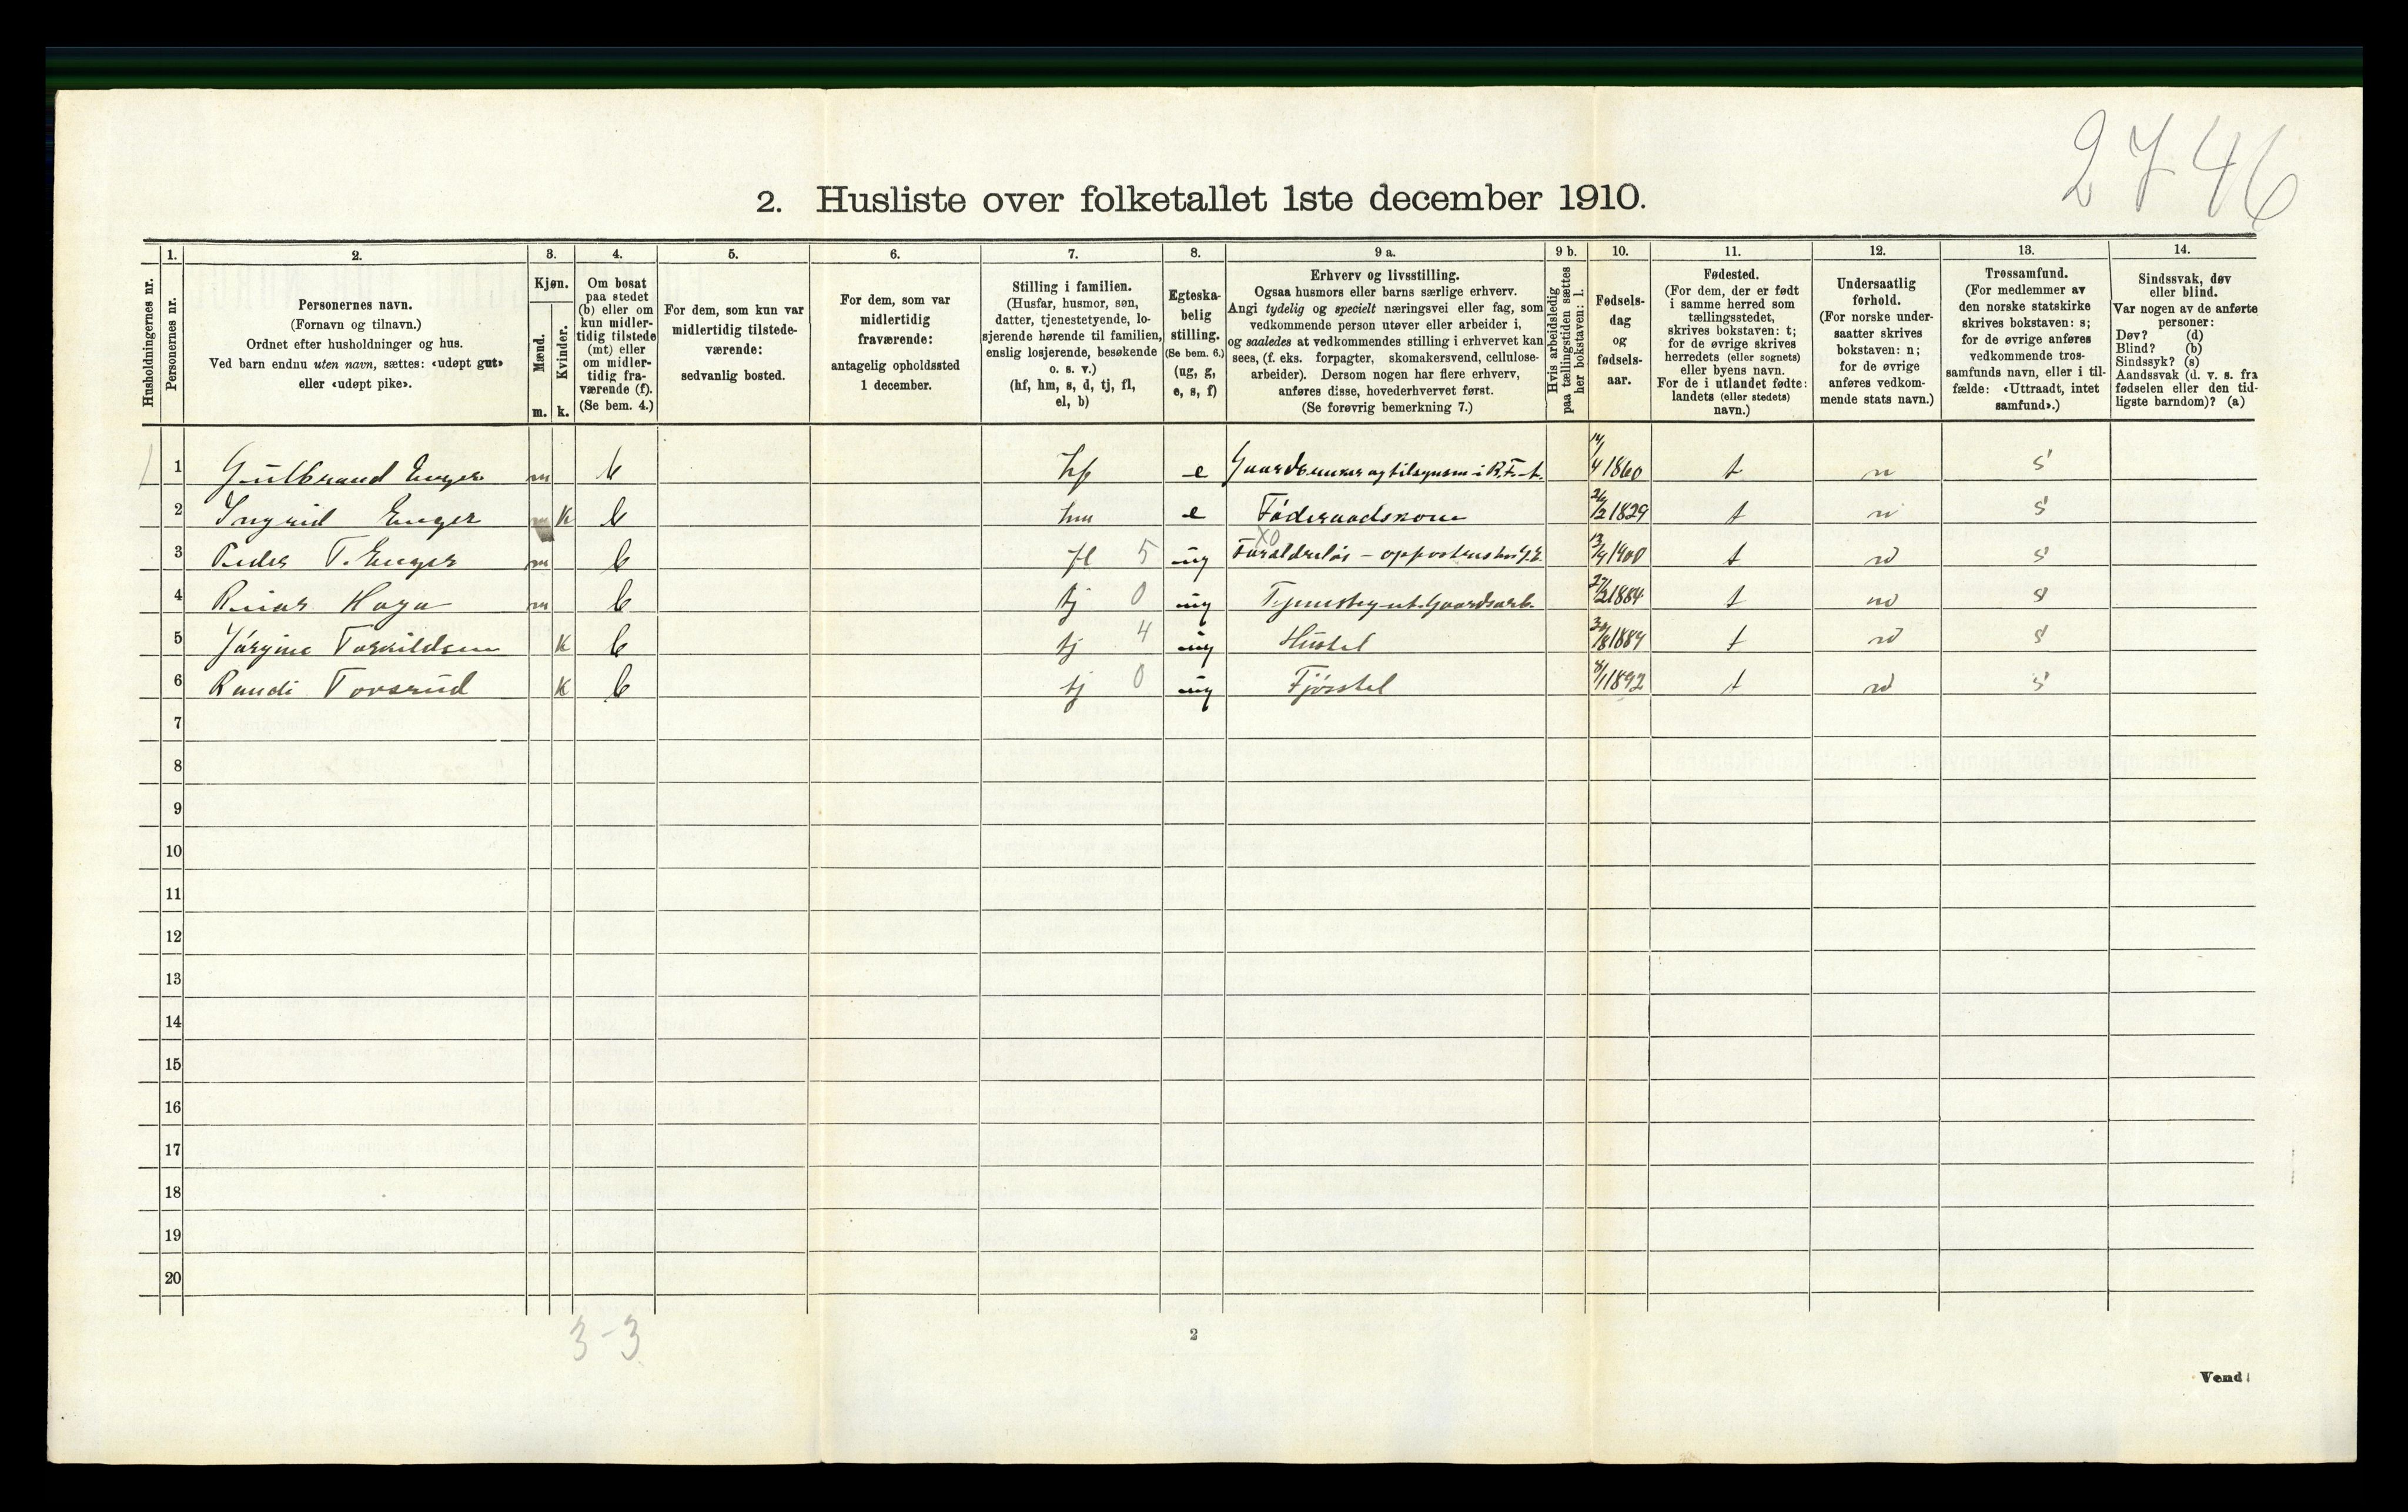 2746
2. Husliste over folketallet 1ste december 1910.
Husholdningernes nr.
1.
Personernes nr.
2.
Personernes navn.
(Fornavn og tilnavn.)
Ordnet efter husholdninger og hus.
Ved barn endnu uten navn, sættes: «udøpt gut»
eller «udøpt pike».
3.
Kjøn.
Mænd.
Kvinder.
m. k.
4.
Om bosat
paa stedet
(b) eller om
kun midler-
tidig tilstede
(mt) eller
om midler-
tidig fra-
værende (f).
(Se bem. 4.)
5.
For dem, som kun var
midlertidig tilstede-
værende:
sedvanlig bosted.
6.
For dem, som var
midlertidig
fraværende:
antagelig opholdssted
1 december.
7.
Stilling i familien.
(Husfar, husmor, søn,
datter, tjenestetyende, lo-
sjerende hørende til familien,
enslig losjerende, besøkende
o. s. v.)
(hf, hm, s, d, tj, fl,
el, b)
8.
Egteska-
belig
stilling.
(Se bem. 6.)
(ug, g,
e, s, f)
9 a.
Erhverv og livsstilling.
Ogsaa husmors eller barns særlige erhverv.
Angi tydelig og specielt næringsvei eller fag, som
vedkommende person utøver eller arbeider i,
og saaledes at vedkommendes stilling i erhvervet kan
sees, (f. eks. forpagter, skomakersvend, cellulose-
arbeider). Dersom nogen har flere erhverv,
anføres disse, hovederhvervet først.
(Se forøvrig bemerkning 7.)
9 b.
Hvis arbeidsledig
paa tællingstiden sættes
her bokstaven: l.
10.
Fødsels-
dag
og
fødsels-
aar.
11.
Fødested.
(For dem, der er født
i samme herred som
tællingsstedet,
skrives bokstaven: t;
for de øvrige skrives
herredets (eller sognets)
eller byens navn.
For de i utlandet fødte:
landets (eller stedets)
navn.)
12.
Undersaatlig
forhold.
(For norske under-
saatter skrives
bokstaven: n;
for de øvrige
anføres vedkom-
mende stats navn.)
13.
Trossamfund.
(For medlemmer av
den norske statskirke
skrives bokstaven: s;
for de øvrige anføres
vedkommende tros-
samfunds navn, eller i til-
fælde: «Uttraadt, intet
samfund».)
14.
Sindssvak, døv
eller blind.
Var nogen av de anførte
personer:
Døv? (d)
Blind? (b)
Sindssyk? (s)
Aandssvak (d. v. s. fra
fødselen eller den tid-
ligste barndom)? (a)
1 Gulbrand Enger m b hf e 14/4 1860 t n s
2 Ingrid Enger k b hm e Føderaadskone 2/2 1829 t n s
3 Peder T. Enger m b fl 5 ug Forældreløs - 13/4 1900 t n s
4 Haga m b tj 0 ug 27/2 1884 t n s
5 Jørgine Torkildsen k b tj 4 ug Hustel 30/8 1889 t n s
6 Randi Tovsrud k b tj 0 ug Fjøsstel 8/1 1892 t n s
7
8
9
10
11
12
13
14
15
16
17
18
19
20
3-3
2
Vend!